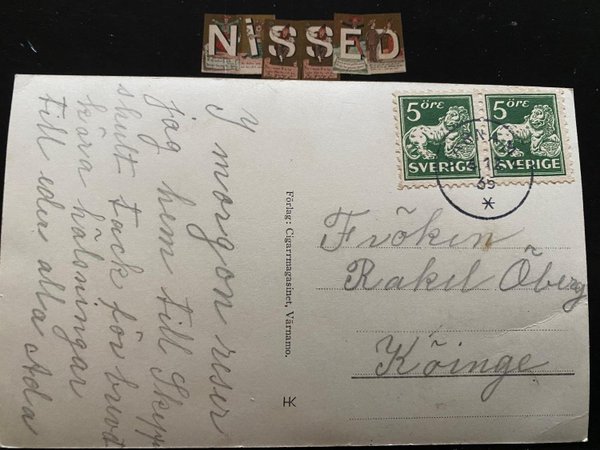 NiSSED
Y morgon reser
jag hem till Skepp
shult tack för brevet
kära hälsningar
till eder alla Ada
Förlag: Cigarrmagasinet, Värnamo.
HK
5 ÖRE
SVERIGE
5 ÖRE
SVERIGE
35
Fröken
Rakel Öberg
Köinge